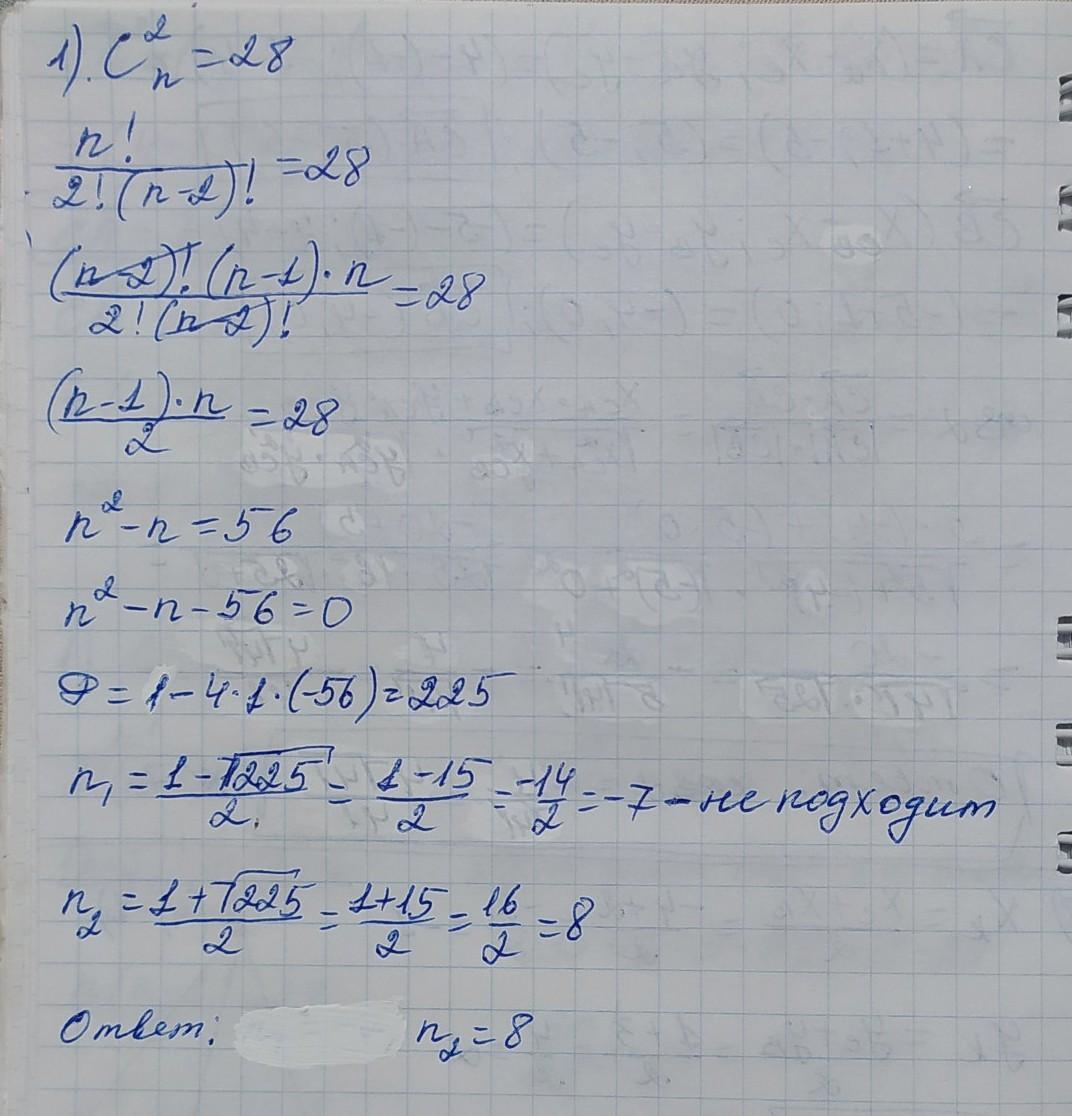 1). C²ₙ = 28
n! / 2!(n-2)! = 28
(n-2)!(n-1)·n / 2!(n-2)! = 28
(n-1)·n / 2 = 28
n² - n = 56
n² - n - 56 = 0
D = 1 - 4·1·(-56) = 225
n₁ = 1 - √225 / 2 = 1 - 15 / 2 = -14 / 2 = -7 - не подходит
n₂ = 1 + √225 / 2 = 1 + 15 / 2 = 16 / 2 = 8
Ответ: n₂ = 8